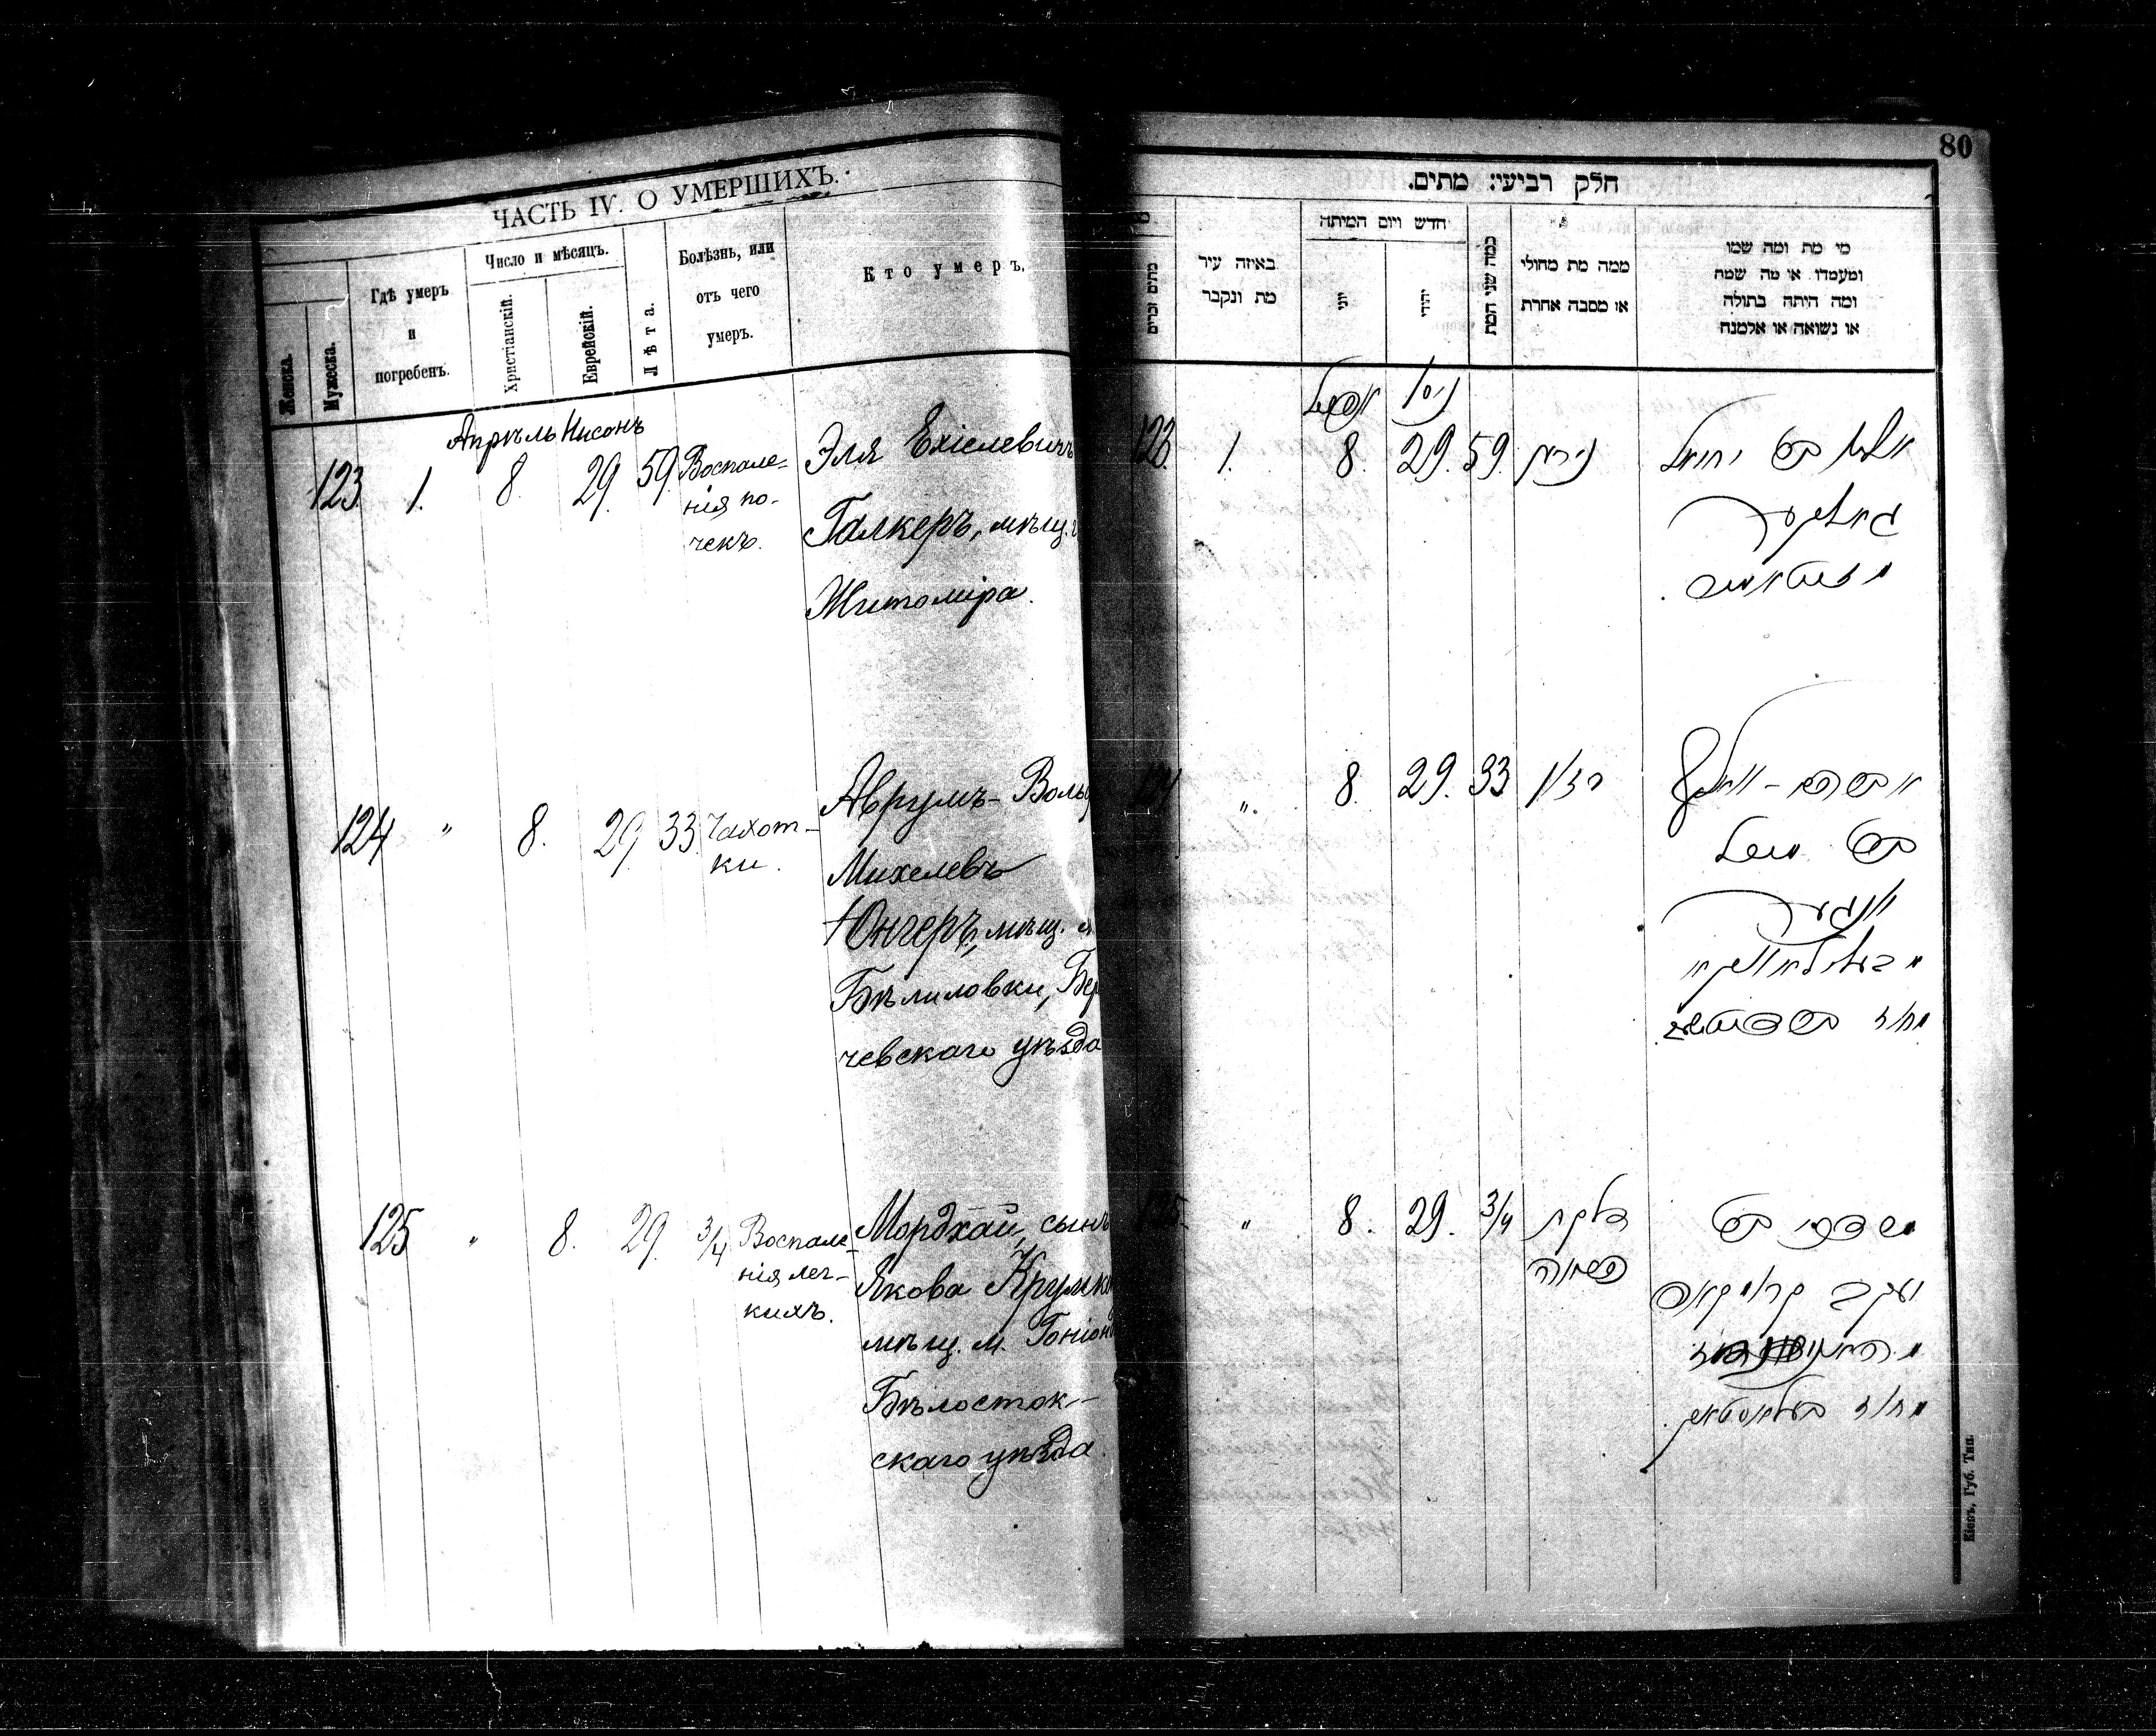 ЧАСТЬ IV. О УМЕРШИХЪ.
Женска.
Мужеска.
Гдѣ умеръ
и
погребенъ.
Число и мѣсяцъ.
Христіанскій.
Еврейскій.
Лѣта.
Болѣзнь, или
отъ чего
умеръ.
Кто умеръ.
Апрѣль Нисонъ
123 1. 8. 29. 59. Воспале-
нія по-
чекъ.
Эля Ехіелевичъ
Галкеръ, мѣщ.
Житоміра.
124 " 8. 29. 33. Чахот-
ки.
Аврумъ-Воль
Михелевъ
Юнгеръ, мѣщ. м.
Бѣлиловки, Бер
чевскаго уѣзда
125 " 8. 29. 3/4 Воспале-
нія лег-
кихъ.
Мордхай, сынъ
Якова Крупк
мѣщ. м. Гоніон
Бѣлосток-
скаго уѣзда.
80
חלק רביעי: מתים.
מתים זכרים
באיזה עיר
מת ונקבר
חדש ויום המיתה
יוני
יהודי
כמה שני המת
ממה מת מחולי
או מסבה אחרת
מי מת ומה שמו
ומעמדו או מה שמת
ומה היתה בתולה
או נשואה או אלמנה
אפריל ניסן
123. 1. 8. 29. 59.
יחיאל
גאלקער
זיטאמיר
124 ". 8. 29. 33
אברהם-וואלף
יונגער
125. " 8. 29. 3/4 דלקת
מרדכי
יעקב
מחוז
Кіевъ, Губ. Тип.